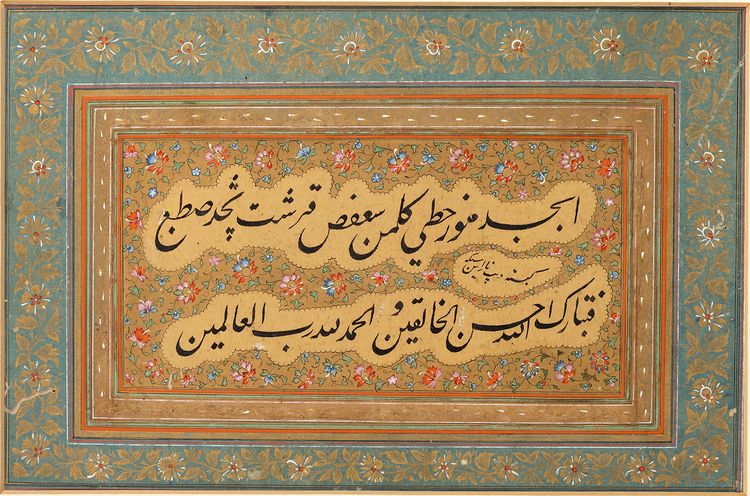 ابجد هوز حطي كلمن سعفص قرشت ثخذ ضظغ
كتبه
فتبارك الله احسن الخالقين و الحمد لله رب العالمين